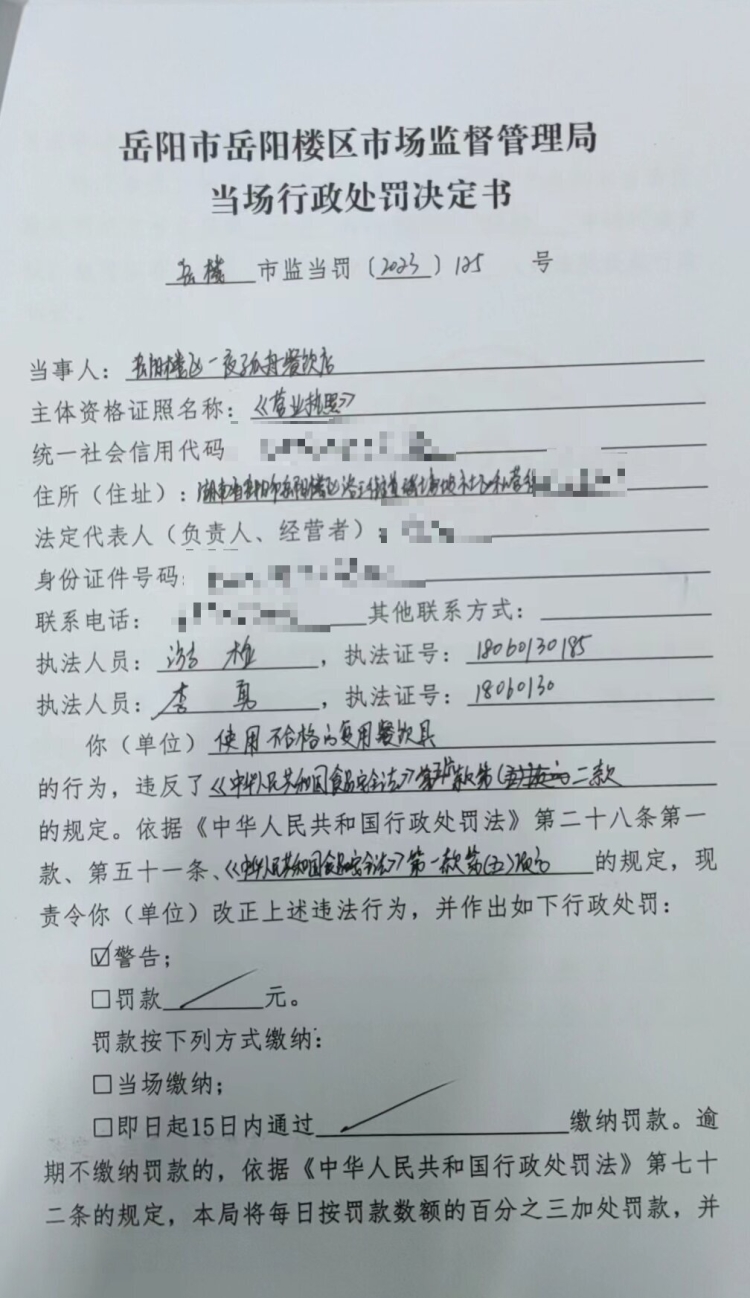 岳阳市岳阳楼区市场监督管理局
当场行政处罚决定书
岳楼 市监当罚〔2023〕125 号
当事人：岳阳楼区一夜孤舟餐饮店
主体资格证照名称：《营业执照》
统一社会信用代码
住所（住址）：湖南省岳阳市岳阳楼区
法定代表人（负责人、经营者）：
身份证件号码：
联系电话： 其他联系方式：
执法人员： ，执法证号：18060130185
执法人员：李勇，执法证号：18060130
你（单位）使用不合格的复用餐饮具
的行为，违反了《中华人民共和国食品安全法》第 款第 二款
的规定。依据《中华人民共和国行政处罚法》第二十八条第一
款、第五十一条、《中华人民共和国食品安全法》第一款第(五)项 的规定，现
责令你（单位）改正上述违法行为，并作出如下行政处罚：
☑警告；
□罚款 元。
罚款按下列方式缴纳：
□当场缴纳；
□即日起15日内通过 缴纳罚款。逾
期不缴纳罚款的，依据《中华人民共和国行政处罚法》第七十
二条的规定，本局将每日按罚款数额的百分之三加处罚款，并